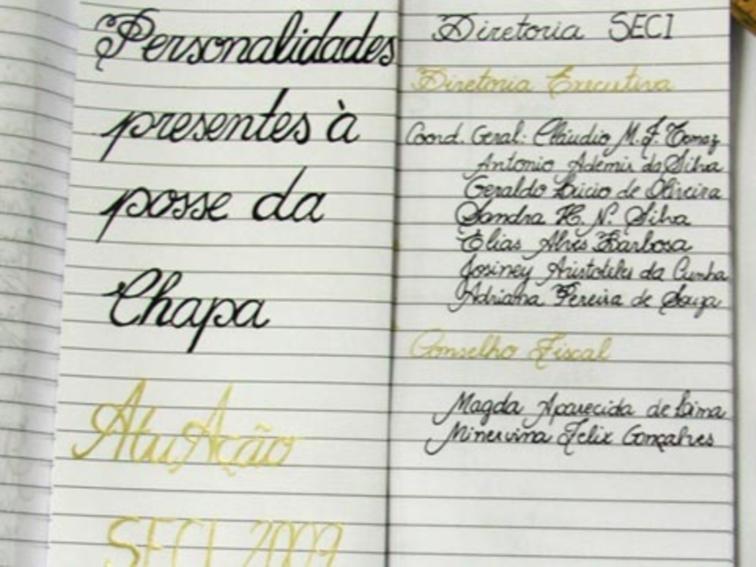 Personalidades
presentes à
posse da
Chapa
AtuAção
SECI 2009
Diretoria SECI
Diretoria Executiva
Coord. Geral: Cláudio M. F. Tomaz
Antonio Ademir da Silva
Geraldo Lúcio de Oliveira
Sandra H. N. Silva
Elias Alves Barbosa
Josiney Aristoteles da Cunha
Adriana Pereira de Souza
Conselho Fiscal
Magda Aparecida de Lima
Minervina Felix Gonçalves